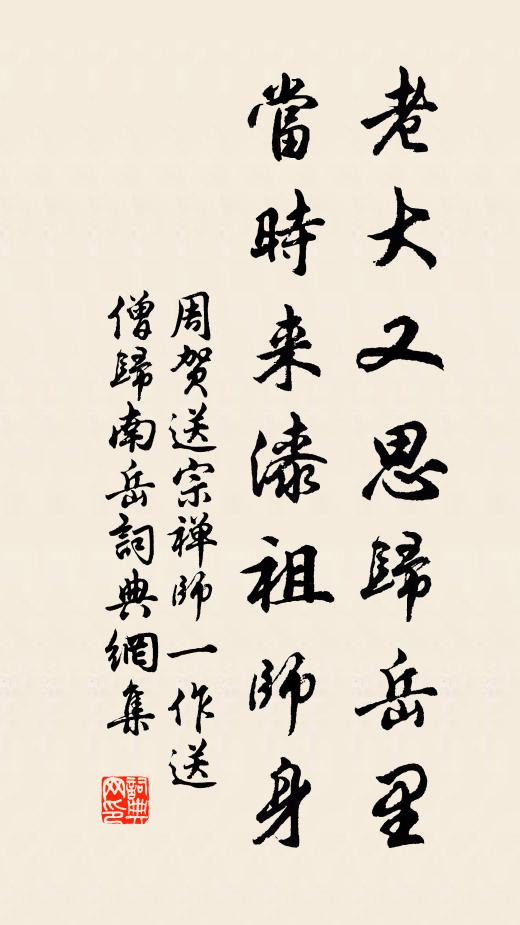 老大又思歸岳里
當時来漆祖師身
周贺送宗禅師一作送
僧歸南岳詞典網集
詞典网印